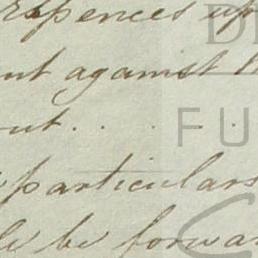 expences up
nt against
ut . . . .
particulars
le be forwar